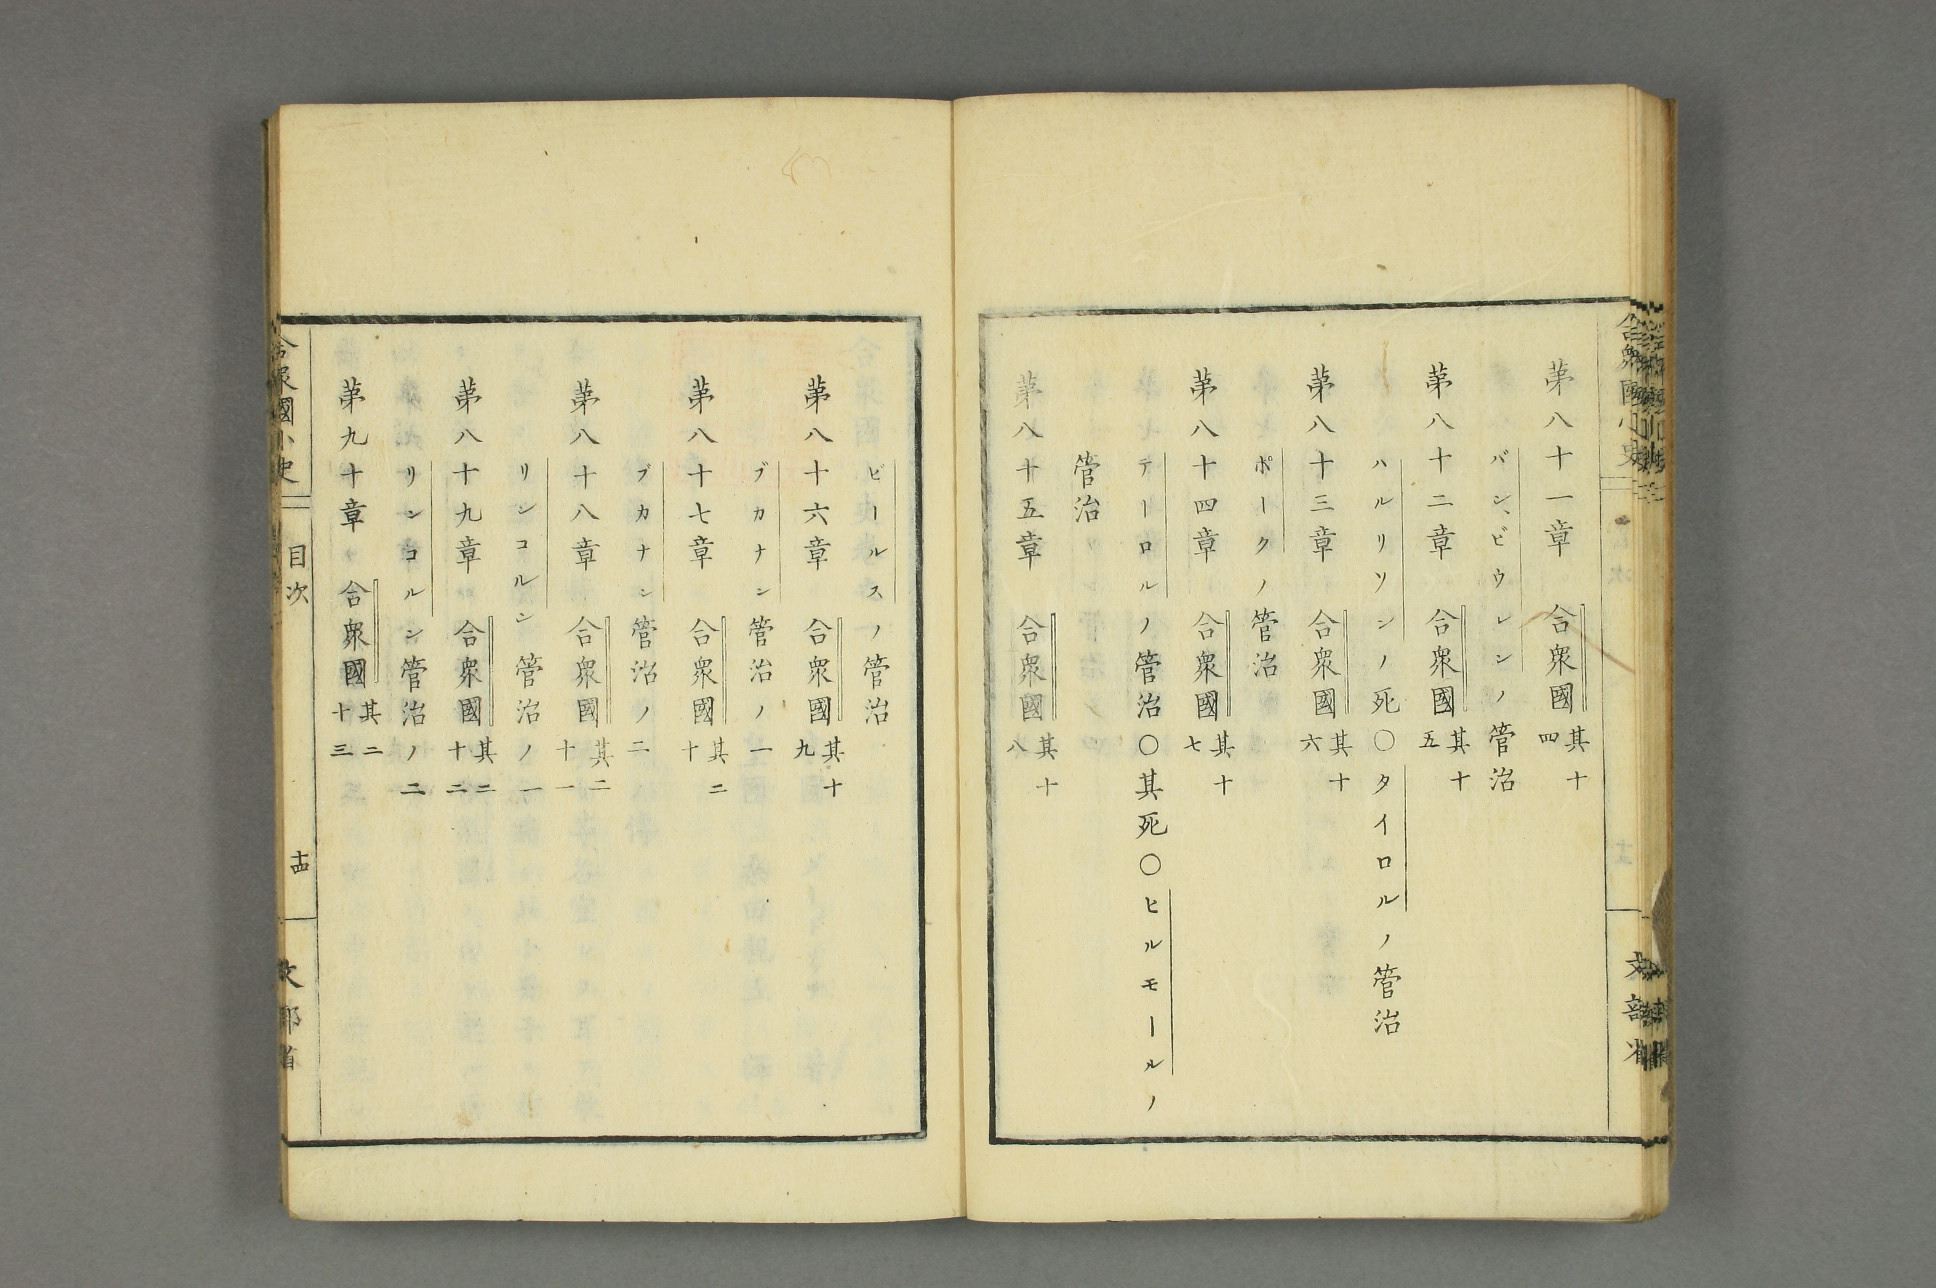 合衆國小史
文部省
第八十一章 合衆國其十四
バン、ビウレンノ管治
第八十二章 合衆國其十五
ハルリソンノ死〇タイロルノ管治
第八十三章 合衆國其十六
ポークノ管治
第八十四章 合衆國其十七
テーロルノ管治〇其死〇ヒルモールノ
管治
第八十五章 合衆國其十八
ビールスノ管治
第八十六章 合衆國其十九
ブカナン管治ノ一
第八十七章 合衆國其二十
ブカナン管治ノ二
第八十八章 合衆國其二十一
リンコルン管治ノ一
第八十九章 合衆國其二十二
リンコルン管治ノ二
第九十章 合衆國其二十三
合衆國小史 目次 十四 文部省